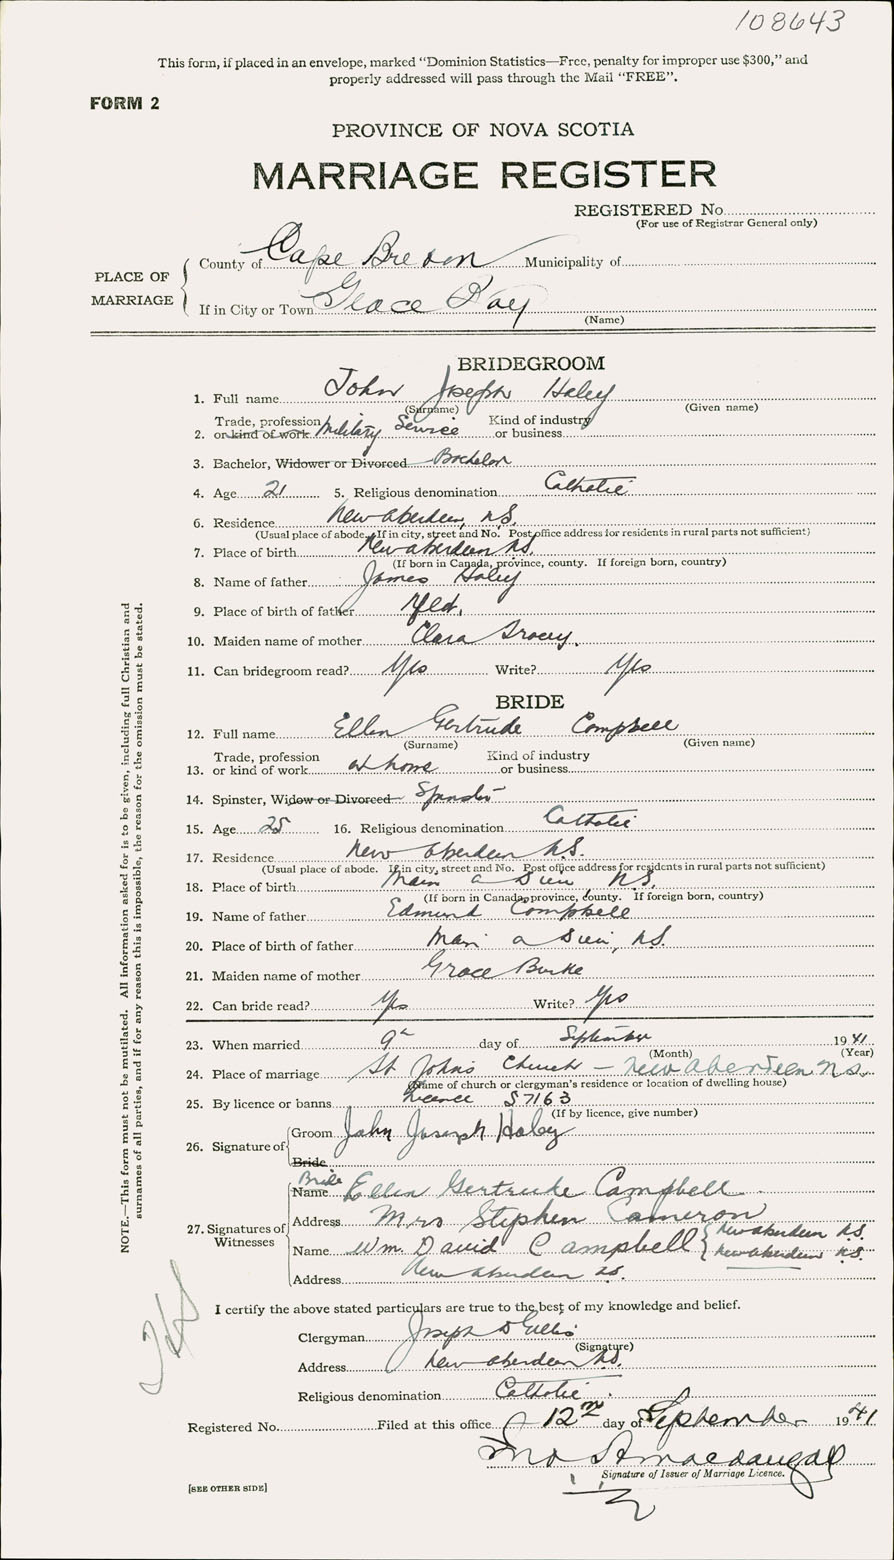 108643
This form, if placed in an envelope, marked "Dominion Statistics—Free, penalty for improper use $300," and
properly addressed will pass through the Mail "FREE".
FORM 2
PROVINCE OF NOVA SCOTIA
MARRIAGE REGISTER
REGISTERED No.
(For use of Registrar General only)
PLACE OF MARRIAGE
County of Cape Breton Municipality of
If in City or Town Glace Bay
(Name)
BRIDEGROOM
1. Full name John Joseph Haley
(Surname) (Given name)
2. Trade, profession or kind of work Military Service Kind of industry or business
3. Bachelor, Widower or Divorced Bachelor
4. Age 21 5. Religious denomination Catholic
6. Residence New Aberdeen, N.S.
(Usual place of abode. If in city, street and No. Post office address for residents in rural parts not sufficient)
7. Place of birth New Aberdeen N.S.
(If born in Canada, province, county. If foreign born, country)
8. Name of father James Haley
9. Place of birth of father Nfld.
10. Maiden name of mother Clara
11. Can bridegroom read? Yes Write? Yes
BRIDE
12. Full name Ellen Gertrude Campbell
(Surname) (Given name)
13. Trade, profession or kind of work at home Kind of industry or business
14. Spinster, Widow or Divorced Spinster
15. Age 25 16. Religious denomination Catholic
17. Residence New Aberdeen N.S.
(Usual place of abode. If in city, street and No. Post office address for residents in rural parts not sufficient)
18. Place of birth Main a Dieu N.S.
(If born in Canada, province, county. If foreign born, country)
19. Name of father Edmund Campbell
20. Place of birth of father Main a Dieu, N.S.
21. Maiden name of mother Grace Burke
22. Can bride read? Yes Write? Yes
23. When married 9th day of September 1941
(Month) (Year)
24. Place of marriage St Johns Church – New Aberdeen N.S.
(Name of church or clergyman's residence or location of dwelling house)
25. By licence or banns Licence 57163
(If by licence, give number)
26. Signature of Groom John Joseph Haley
Bride
Bride
27. Signatures of Witnesses
Name Ellen Gertrude Campbell
Address Mrs Stephen Cameron New Aberdeen N.S.
Name Wm. David Campbell New Aberdeen N.S.
Address New Aberdeen N.S.
I certify the above stated particulars are true to the best of my knowledge and belief.
Clergyman Joseph D Gillis
(Signature)
Address New Aberdeen N.S.
Religious denomination Catholic.
Registered No. Filed at this office 12th day of September 1941
Signature of Issuer of Marriage Licence.
[SEE OTHER SIDE]
NOTE.—This form must not be mutilated. All information asked for is to be given, including full Christian and
surnames of all parties, and if for any reason this is impossible, the reason for the omission must be stated.